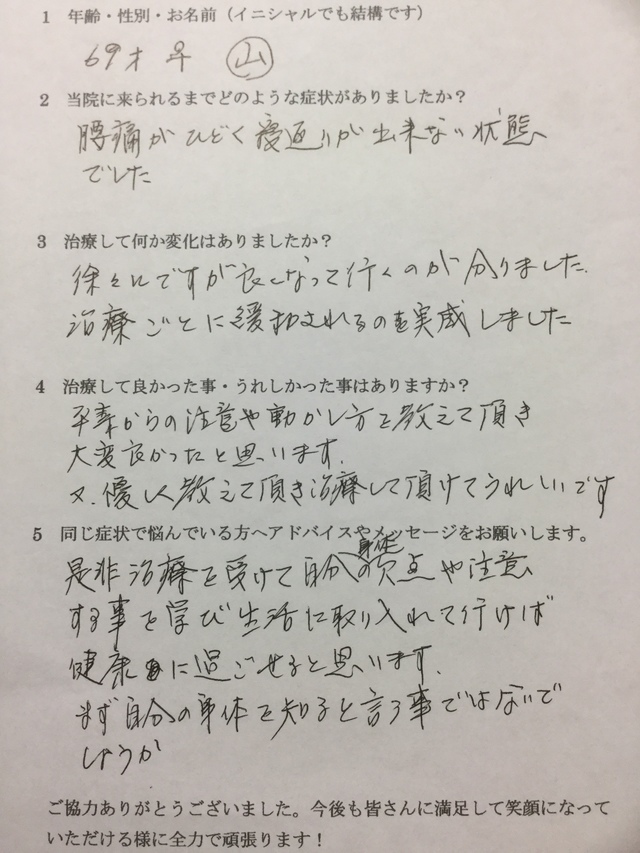 1 年齢・性別・お名前（イニシャルでも結構です）
69才 ㊛ 山
2 当院に来られるまでどのような症状がありましたか？
腰痛がひどく寝返りが出来ない状態
でした
3 治療して何か変化はありましたか？
徐々にですが良くなって行くのが分りました.
治療ごとに緩和されるのを実感しました
4 治療して良かった事・うれしかった事はありますか？
平素からの注意や動かし方を教えて頂き
大変良かったと思います.
又、優しく教えて頂き治療して頂けてうれしいです
5 同じ症状で悩んでいる方へアドバイスやメッセージをお願いします。
是非治療を受けて自分の身体の欠点や注意
する事を学び生活に取り入れて行けば
健康に過ごせると思います.
まず自分の身体を知ると言う事ではないで
しょうか
ご協力ありがとうございました。今後も皆さんに満足して笑顔になって
いただける様に全力で頑張ります！